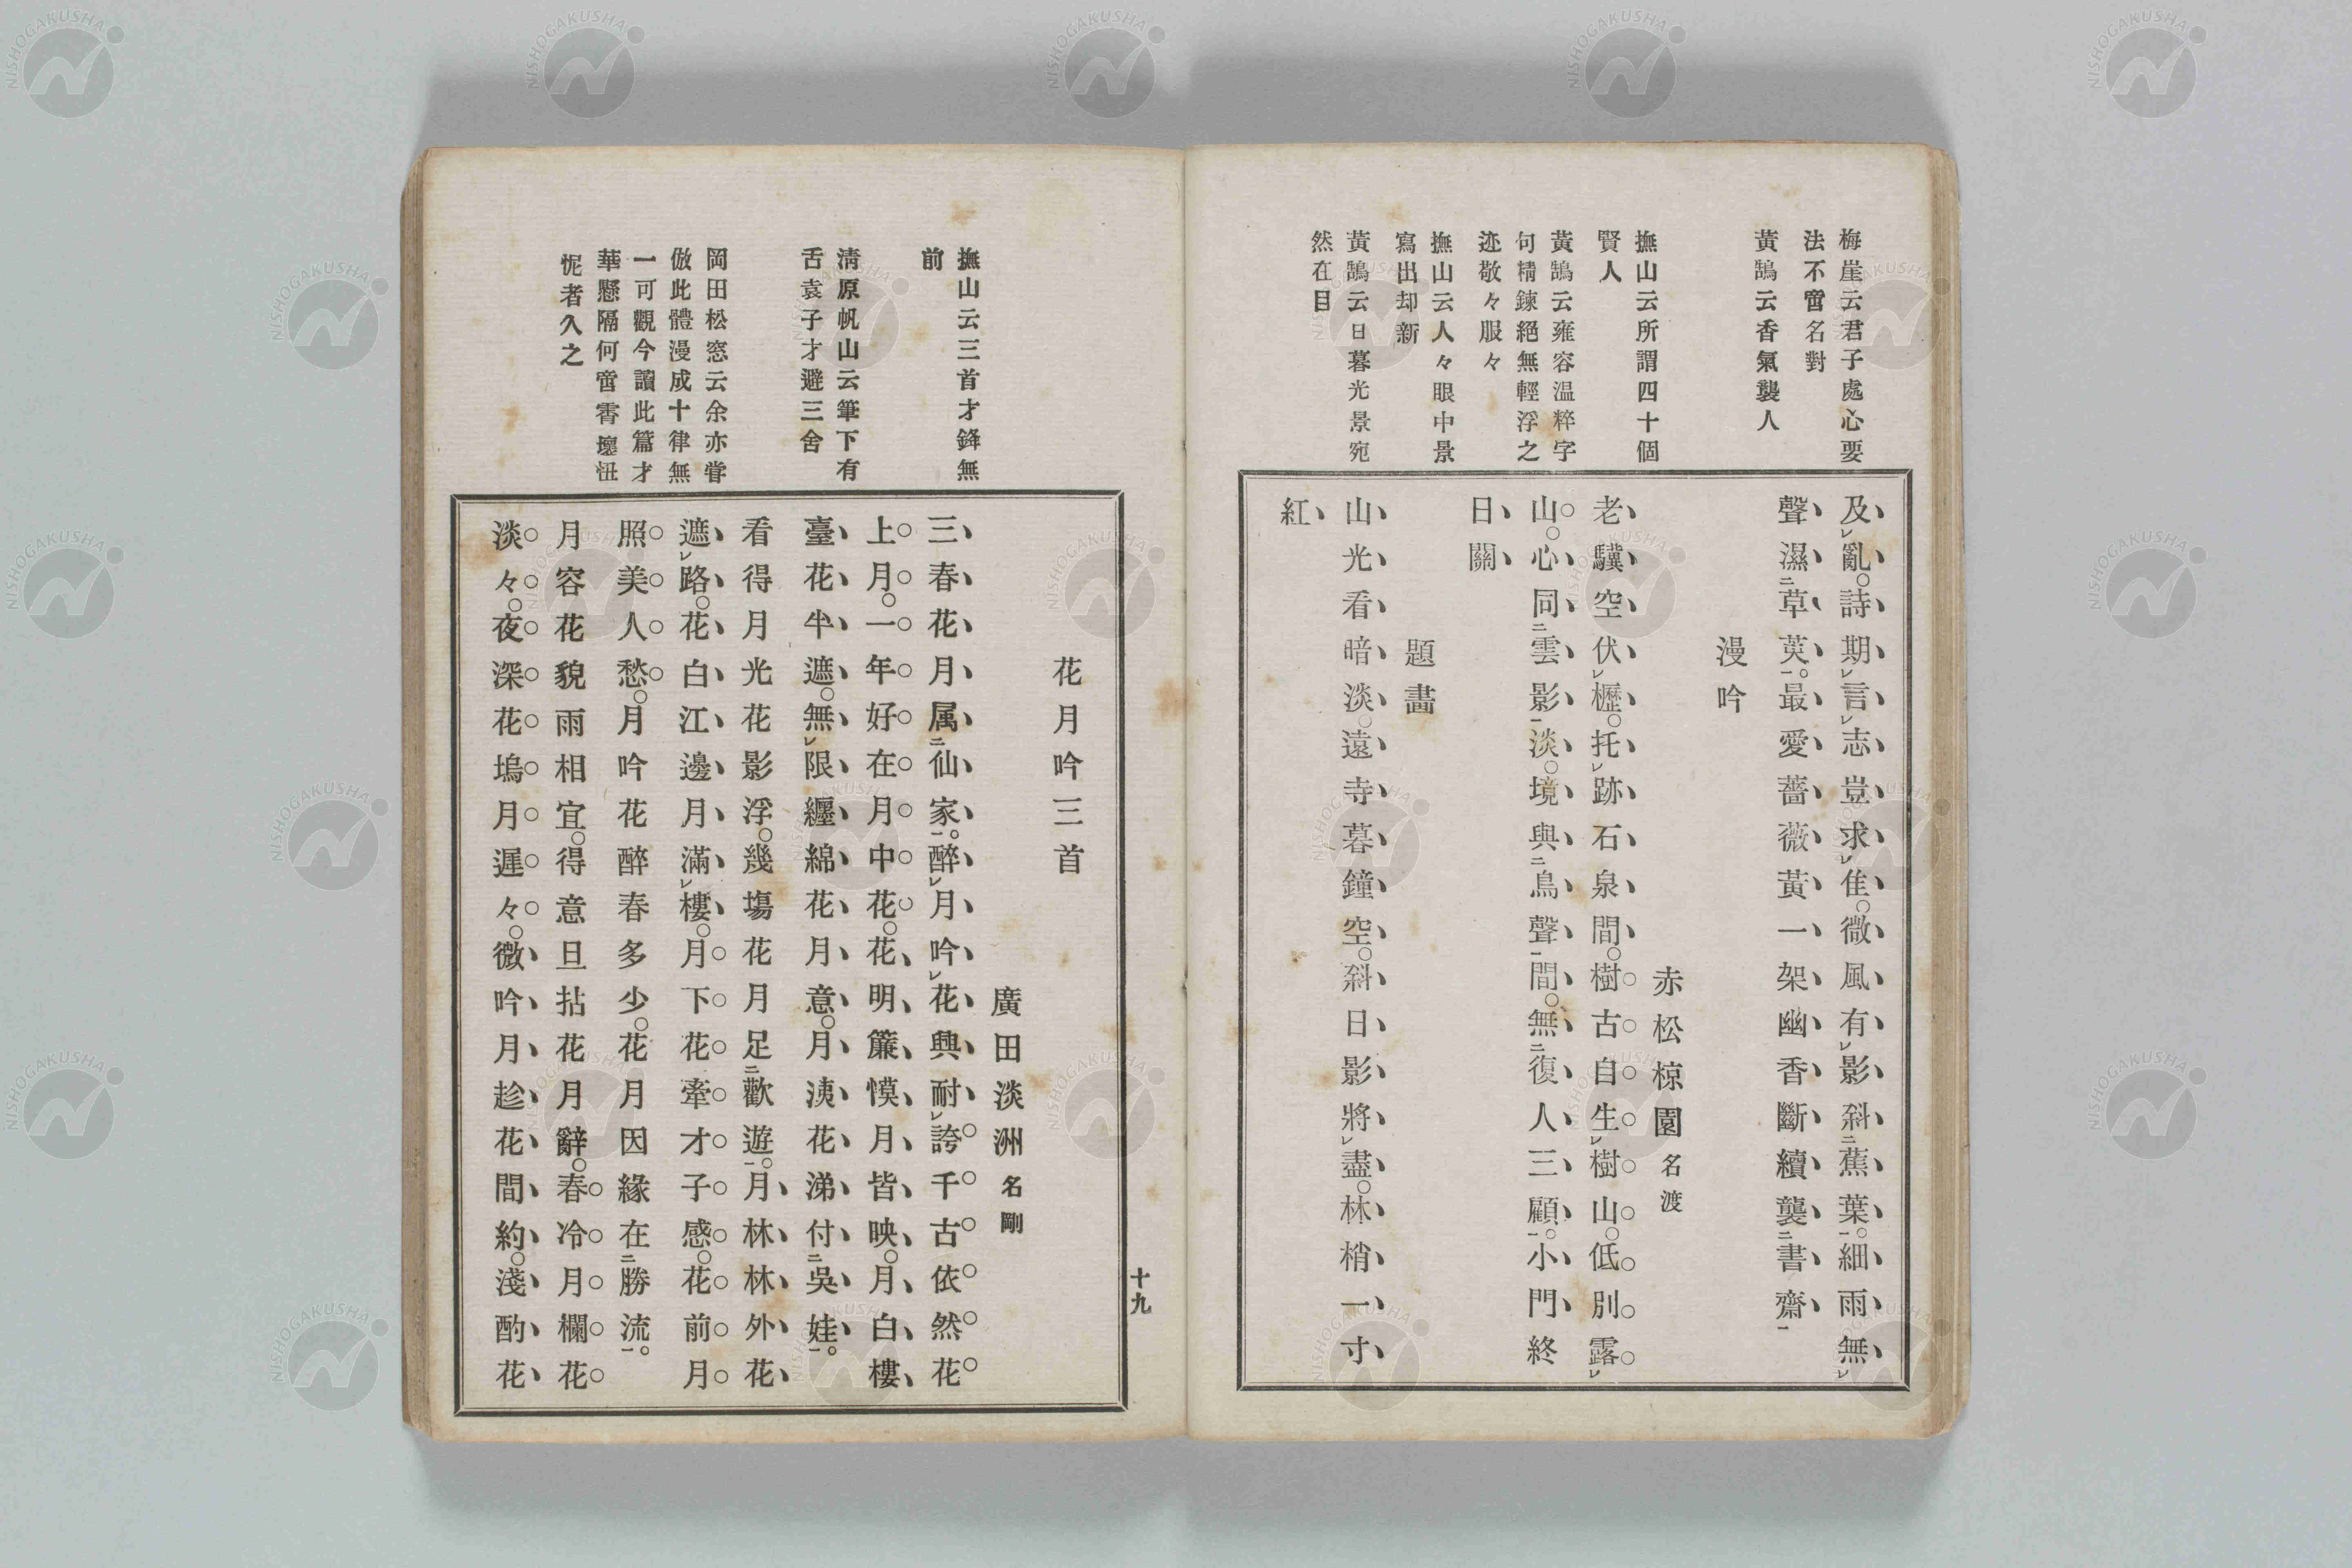 梅崖云君子處心要
法不啻名對
黃鵠云香氣襲人
撫山云所謂四十個
賢人
黃鵠云雍容温粹字
句精鍊絕無輕浮之
迹敬々服々
撫山云人々眼中景
寫出却新
黃鵠云日暮光景宛
然在目
及亂。詩期言志豈求佳。微風有影斜蕉葉。細雨無
聲濕草英。最愛薔薇黃一架幽香斷續襲書齋
漫吟
赤松椋園名渡
老驥空伏櫪。托跡石泉間。樹古自生樹山。低別露
山。心同雲影淡。境與鳥聲間。無復人三顧。小門終
日關
題畵
山光看暗淡。遠寺暮鐘空。斜日影將盡。林梢一寸
紅
撫山云三首才鋒無
前
清原帆山云筆下有
舌袁子才避三舍
岡田松窓云余亦嘗
倣此體漫成十律無
一可觀今讀此篇才
華懸隔何啻霄壤忸
怩者久之
十九
花月吟三首
廣田淡洲名剛
三春花月属仙家。醉月吟花興耐誇千古依然花
上月。一年好在月中花。花明簾幙月皆映。月白樓
臺花半遮。無限纒綿花月意。月洟花涕付吳娃。
看得月光花影浮。幾塲花月足歡遊。月林林外花
遮路。花白江邊月滿樓。月下花牽才子感。花前月
照美人愁。月吟花醉春多少。花月因緣在勝流。
月容花貌雨相宜。得意旦拈花月辭。春冷月欄花
淡々。夜深花塢月遲々。微吟月趁花間約。淺酌花
NISHOGAKUSHA